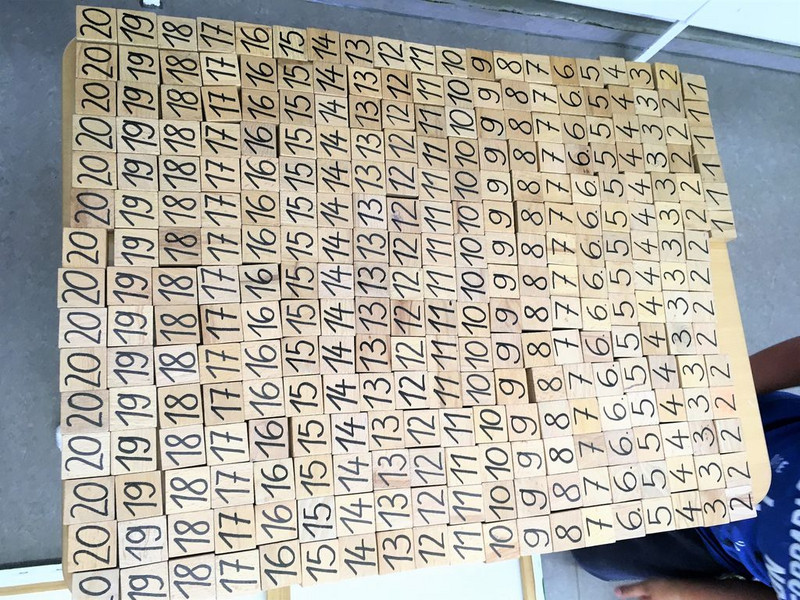 20 20 20 20 20 20 20 20 20 20 20 20 20 20
19 19 19 19 19 19 19 19 19 19 19 19 19 19 19
18 18 18 18 18 18 18 18 18 18 18 18 18 18 18
17 17 17 17 17 17 17 17 17 17 17 17 17 17 17
16 16 16 16 16 16 16 16 16 16 16 16 16 16 16
15 15 15 15 15 15 15 15 15 15 15 15 15 15 15
14 14 14 14 14 14 14 14 14 14 14 14 14 14 14
13 13 13 13 13 13 13 13 13 13 13 13 13 13 13
12 12 12 12 12 12 12 12 12 12 12 12 12 12 12
11 11 11 11 11 11 11 11 11 11 11 11 11 11 11
10 10 10 10 10 10 10 10 10 10 10 10 10 10 10
9 9 9 9 9 9 9 9 9 9 9 9 9 9 9
8 8 8 8 8 8 8 8 8 8 8 8 8 8 8
7 7 7 7 7 7 7 7 7 7 7 7 7 7 7
6. 6. 6. 6. 6. 6. 6. 6. 6. 6. 6. 6. 6. 6. 6.
5 5 5 5 5 5 5 5 5 5 5 5 5 5 5
4 4 4 4 4 4 4 4 4 4 4 4 4 4 4
3 3 3 3 3 3 3 3 3 3 3 3 3 3 3
2 2 2 2 2 2 2 2 2 2 2 2 2 2 2
1 1 1 1 1 1 1